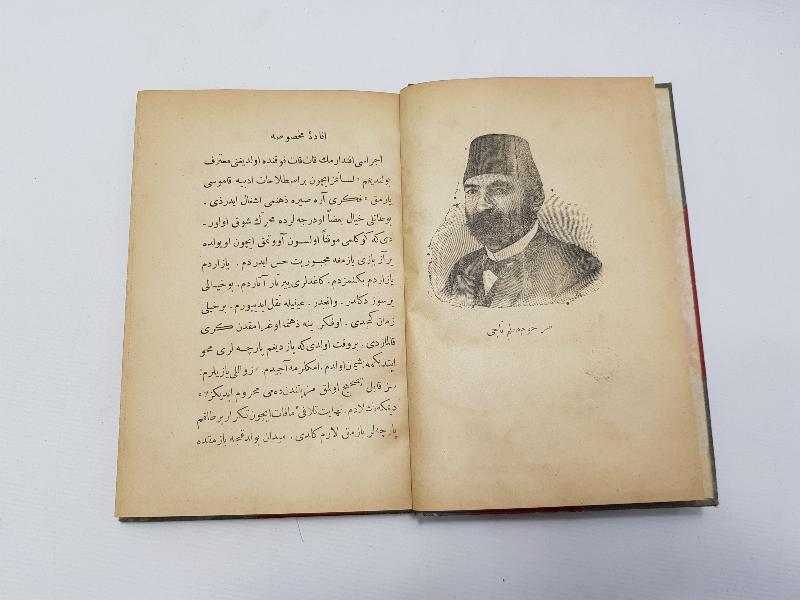 افادۀ مخصوصه
اجراسی اقتدارمك قات قات فوقنده اولدیغنی معترف
بولندیغم « لسانمز ایچون بر اصطلاحات ادبیه قاموسی
یازمق » فكری آره صیره ذهنمی اشغال ایدردی .
بو طاتلی خیال بعضاً او درجه‌لرده محرك شوق اولور ـ
دی كه كوكلمی موقتاً اولسون آووتمق ایچون او یولده
بر آز یازی یازمغه مجبوریت حس ایدردم . یازاردم
یازاردم بكنمزدم . كاغدلری ییرتار آتاردم . بو خیالی
بر سوز دكلدر . واقعدر . عینیله نقل ایدییورم . بر خیلی
زمان كچدی . او فكر ینه ذهنمه اوغرامقدن كری
قالمازدی . بر وقت اولدی كه یازدیغم پارچه لری محو
ایتدیكمه پشیمان اولدم . امكلرمه آجیدم . زواللی یازیلرم :
سز قابل تصحیح اولمق مزیتندن ده می محروم ایدیكز ؟ »
دیمكه باشلادم . نهایت تلافئ مافات ایچون تكرار بر طاقم
پارچه‌لر یازمق لازم كلدی . میدان بولدقجه یازمقده
معلم ناجی